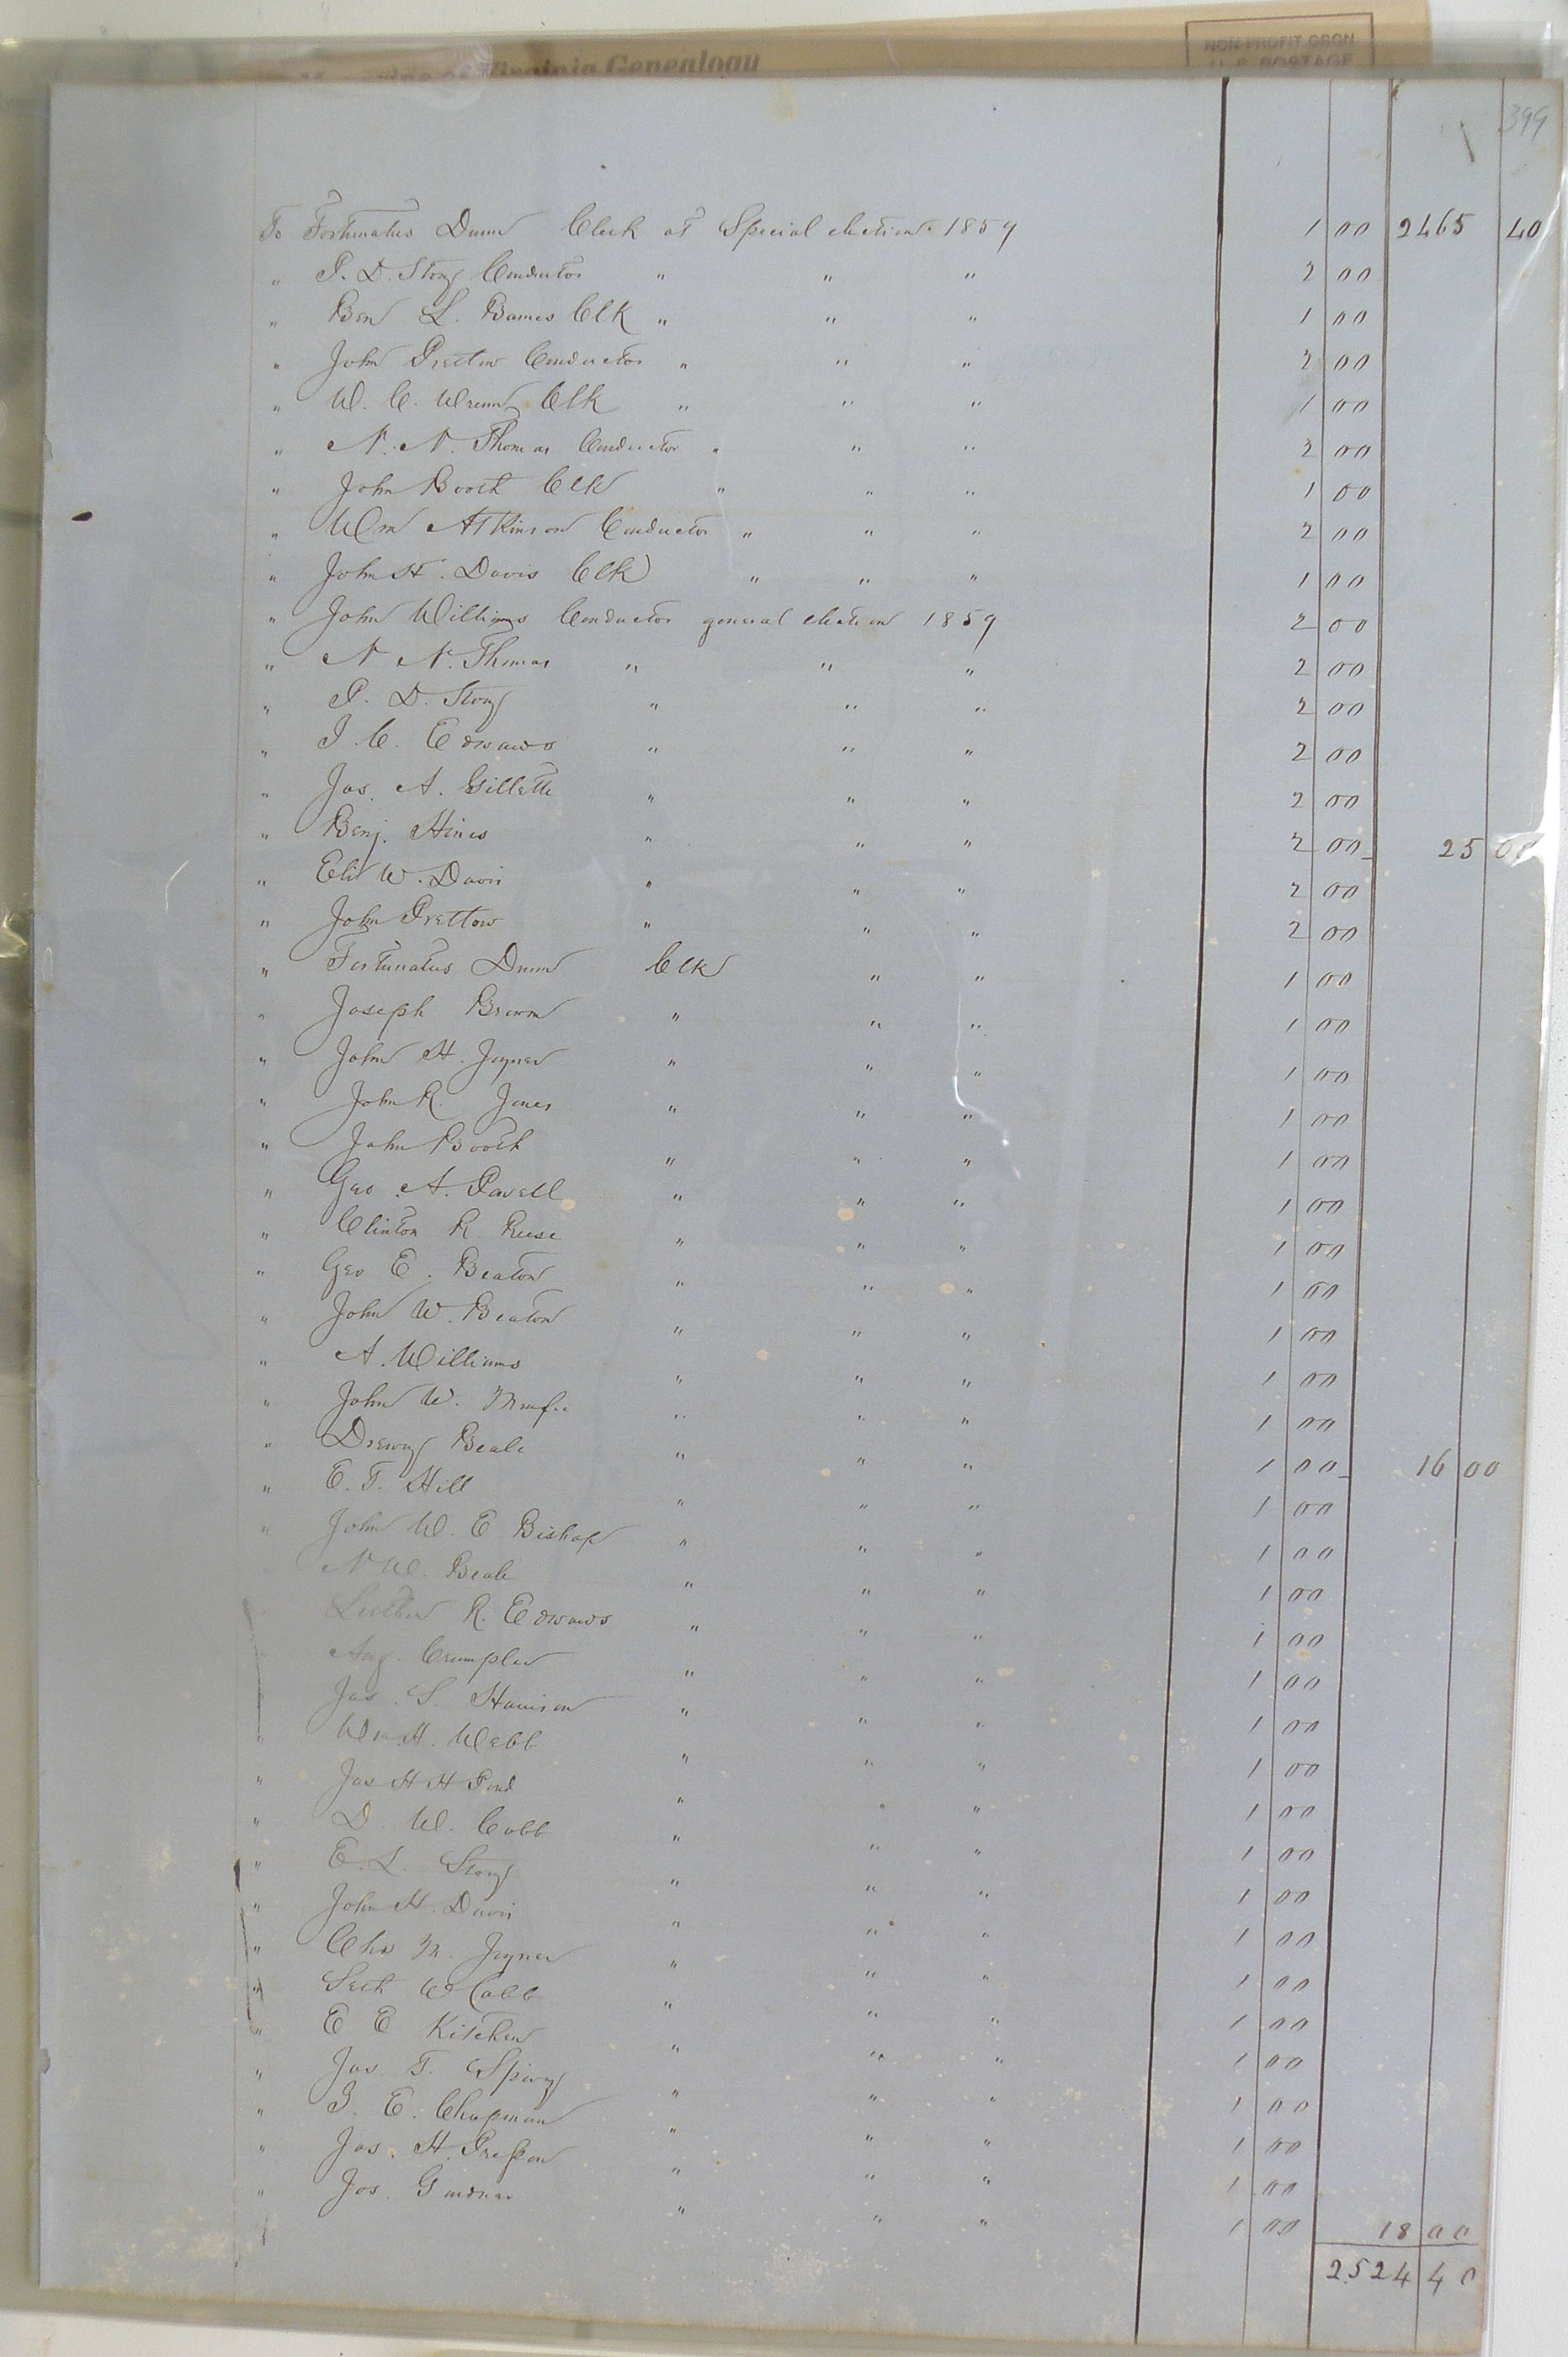 Magazine of Virginia Genealogy
NON-PROFIT ORGN
U.S. POSTAGE
399
To Fortunatus Dunn Clerk at Special election 1859 1 00 2465 40
" P. D. Story Conductor " " " 2 00
" Ben L. Barnes Clk " " " 1 00
" John Pretlow Conductor " " " 2 00
" W. C. Wrenn Clk " " " 1 00
" N. N. Thomas Conductor " " " 2 00
" John Booth Clk " " " 1 00
" Wm Atkinson Conductor " " " 2 00
" John H. Davis Clk " " " 1 00
" John Williams Conductor general election 1859 2 00
" N N. Thomas " " " 2 00
" P. D. Story " " " 2 00
" J. C. Edwards " " " 2 00
" Jas. A. Gillette " " " 2 00
" Benj. Hines " " " 2 00 25 00
" Eli W. Davis " " " 2 00
" John Pretlow " " " 2 00
" Fortunatus Dunn Clk " " 1 00
" Joseph Brown " " " 1 00
" John H. Joyner " " " 1 00
" John R. Jones " " " 1 00
" John Booth " " " 1 00
" Geo. A. Powell " " " 1 00
" Clinton R. Reese " " " 1 00
" Geo E. Beaton " " " 1 00
" John W. Beaton " " " 1 00
" A. Williams " " " 1 00
" John W. " " " 1 00
" Drewry Beale " " " 1 00 16 00
" E. T. Hill " " " 1 00
" John W. E Bishop " " " 1 00
" N W. Beale " " " 1 00
" Luther R. Edwards " " " 1 00
" Aug. Crumpler " " " 1 00
" Jas. S. Harrison " " " 1 00
" Wm. H. Webb " " " 1 00
" Jas H H Pond " " " 1 00
" D. W. Cobb " " " 1 00
" E. L. Story " " " 1 00
" John H. Davis " " " 1 00
" Chs M. Joyner " " " 1 00
" Seth W Cobb " " " 1 00
" E E Kitchen " " " 1 00
" Jas. T. Spivey " " " 1 00
" J. E. Chapman " " " 1 00
" Jas. H. Preston " " " 1 00
" Jos. Gardner " " " 1 00 18 00
2524 40